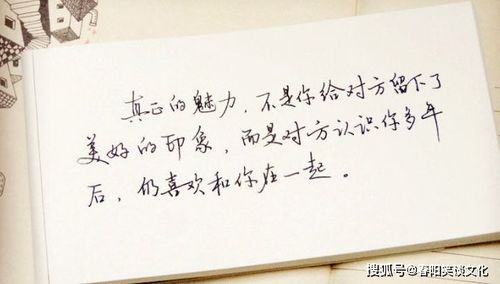 真正的魅力,不是你给对方留下了
美好的印象,而是对方认识你多年
后,仍喜欢和你在一起。
搜狐号@春阳笑谈文化